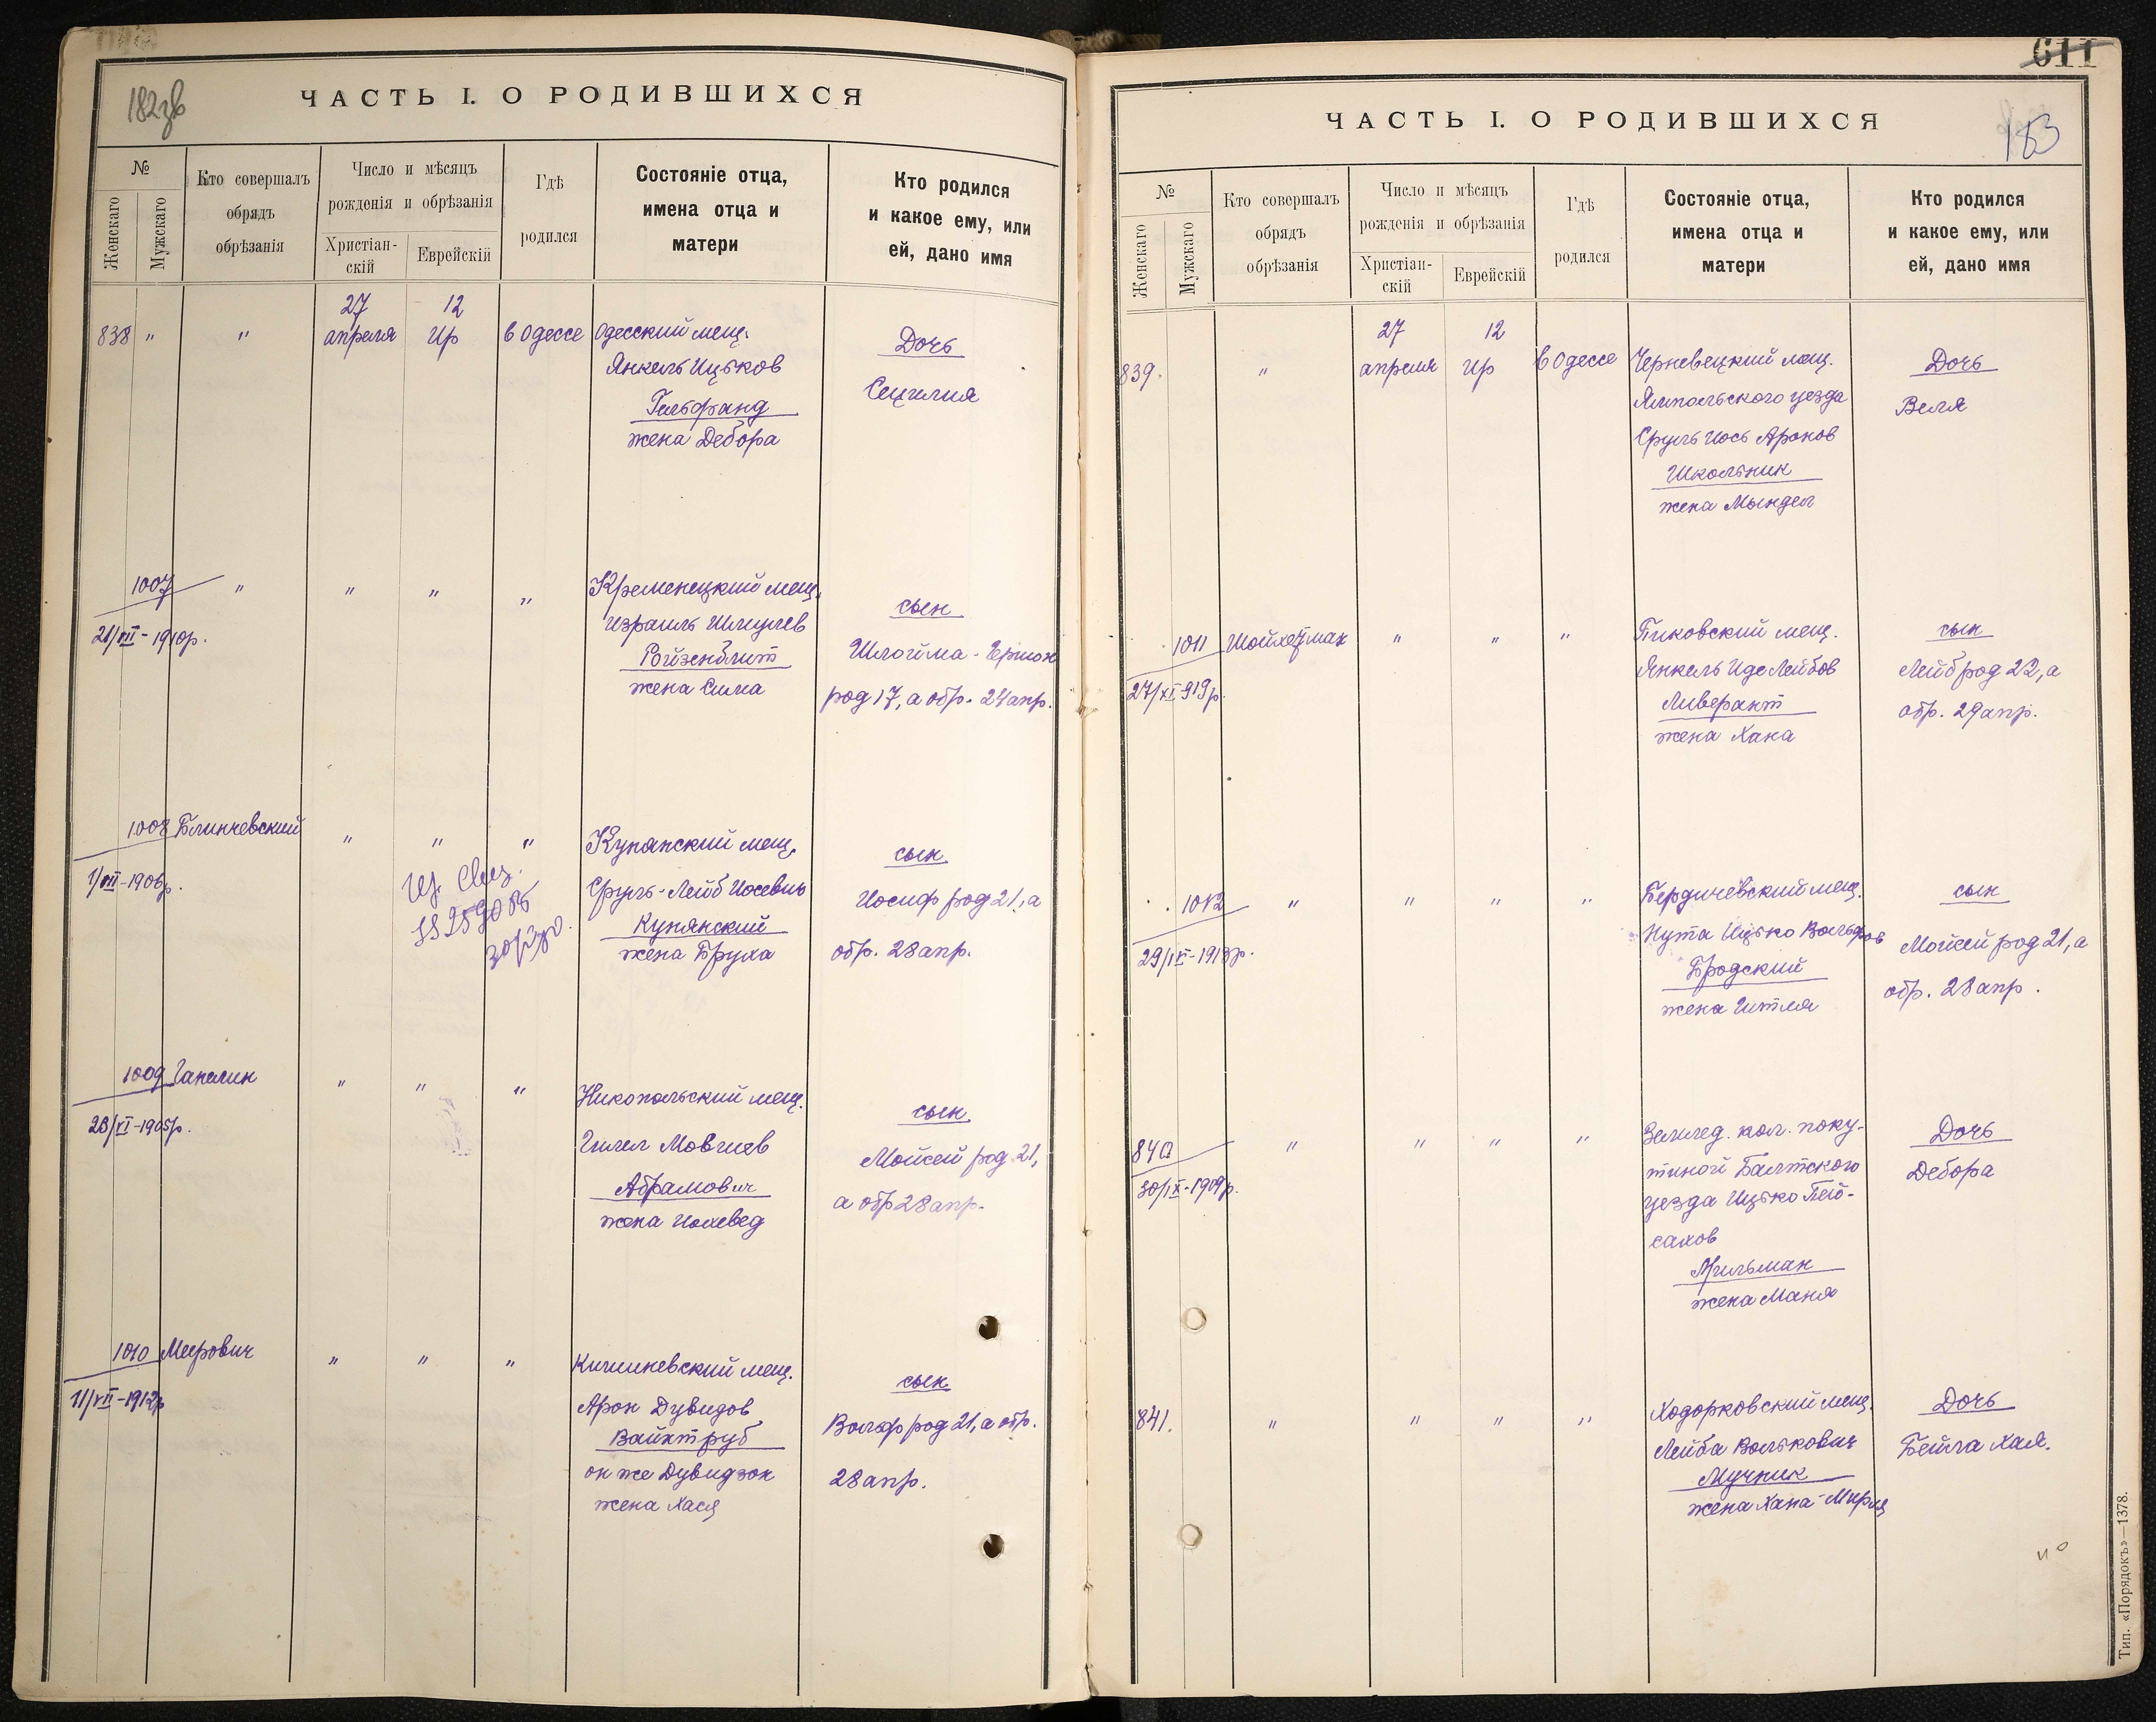 182зв
ЧАСТЬ I. О РОДИВШИХСЯ
№
Женскаго
Мужскаго
Кто совершалъ
обрядъ
обрѣзанія
Число и мѣсяцъ
рожденія и обрѣзанія
Христіан-
скій
Еврейскій
Гдѣ
родился
Состояніе отца,
имена отца и
матери
Кто родился
и какое ему, или
ей, дано имя
27 12
838 " " апреля Ир в Одессе Одесский мещ.
Янкель Ицьков
Гельфанд
жена Дебора
Дочь
Сецилия
1007 " " " " Кременецкий мещ.
21/VII - 1910р.
Израиль Шмулев
Ройзенблит
жена Сима
сын
Шлойма - Гершон
род 17, а обр. 24 апр.
1008 Блинчевский " " " Купянский мещ.
1/VIII-1906р.
Сруль-Лейб Иосевич
Купянский
жена Бруха
сын
Иосиф род 21, а
обр. 28 апр.
1009 Ганелин " " " Никопольский мещ.
28/VI-1905р.
Гилел Мовчиев
Абрамович
жена Иохевед
сын
Мойсей род 21,
а обр 28 апр.
1010 Меерович " " " Кишиневский мещ.
11/VII-1912р
Арон Дувидов
Вайнтруб
он же Дувидзон
жена Хася
сын
Вольф род 21, а обр.
28 апр.
611
183
ЧАСТЬ I. О РОДИВШИХСЯ
№
Женскаго
Мужскаго
Кто совершалъ
обрядъ
обрѣзанія
Число и мѣсяцъ
рожденія и обрѣзанія
Христіан-
скій
Еврейскій
Гдѣ
родился
Состояніе отца,
имена отца и
матери
Кто родился
и какое ему, или
ей, дано имя
27 12
839. " апреля Ир в Одессе Черневецкий мещ.
Ямпольского уезда
Сруль Иось Аронов
Школьник
жена Мындел
Дочь
Веля
1011 Шойхетман " " " Пиковский мещ.
27/XI 919р.
Янкель Иде Лейбов
Ливерант
жена Хана
сын
Лейб род 22, а
обр. 29 апр.
1012 " " " " Бердичевский мещ.
Нута Ицько Вольфов
Бродский
жена Гитля
сын
Мойсей род 21, а
обр. 28 апр.
840 " " " " Землед. кол. поку-
30/IX-1909р.
тиной Балтского
уезда Ицько Пей-
сахов
Мильман
жена Маня
Дочь
Дебора
841. " " " " Ходорковский мещ.
Лейба Волькович
Мучник
жена Хана-Мирия
Дочь
Бейла Хая.
Тип. «Порядокъ»—1378.